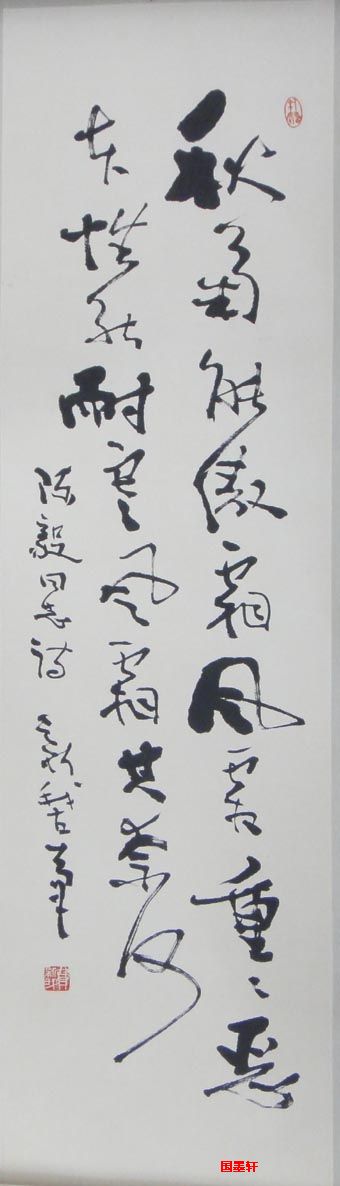 秋菊能傲霜风霜重重恶
本性能耐寒风霜其奈何
陈毅同志诗
国墨轩